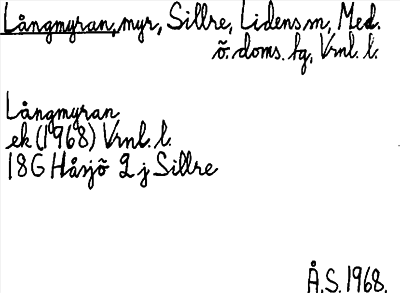 Långmyran, myr, Sillre, Lidens sn, Med.
ö. doms. fg, Vrnl. l.
Långmyran
ek (1968) Vrnl. l.
18G Håsjö 2 j Sillre
Å.S. 1968.